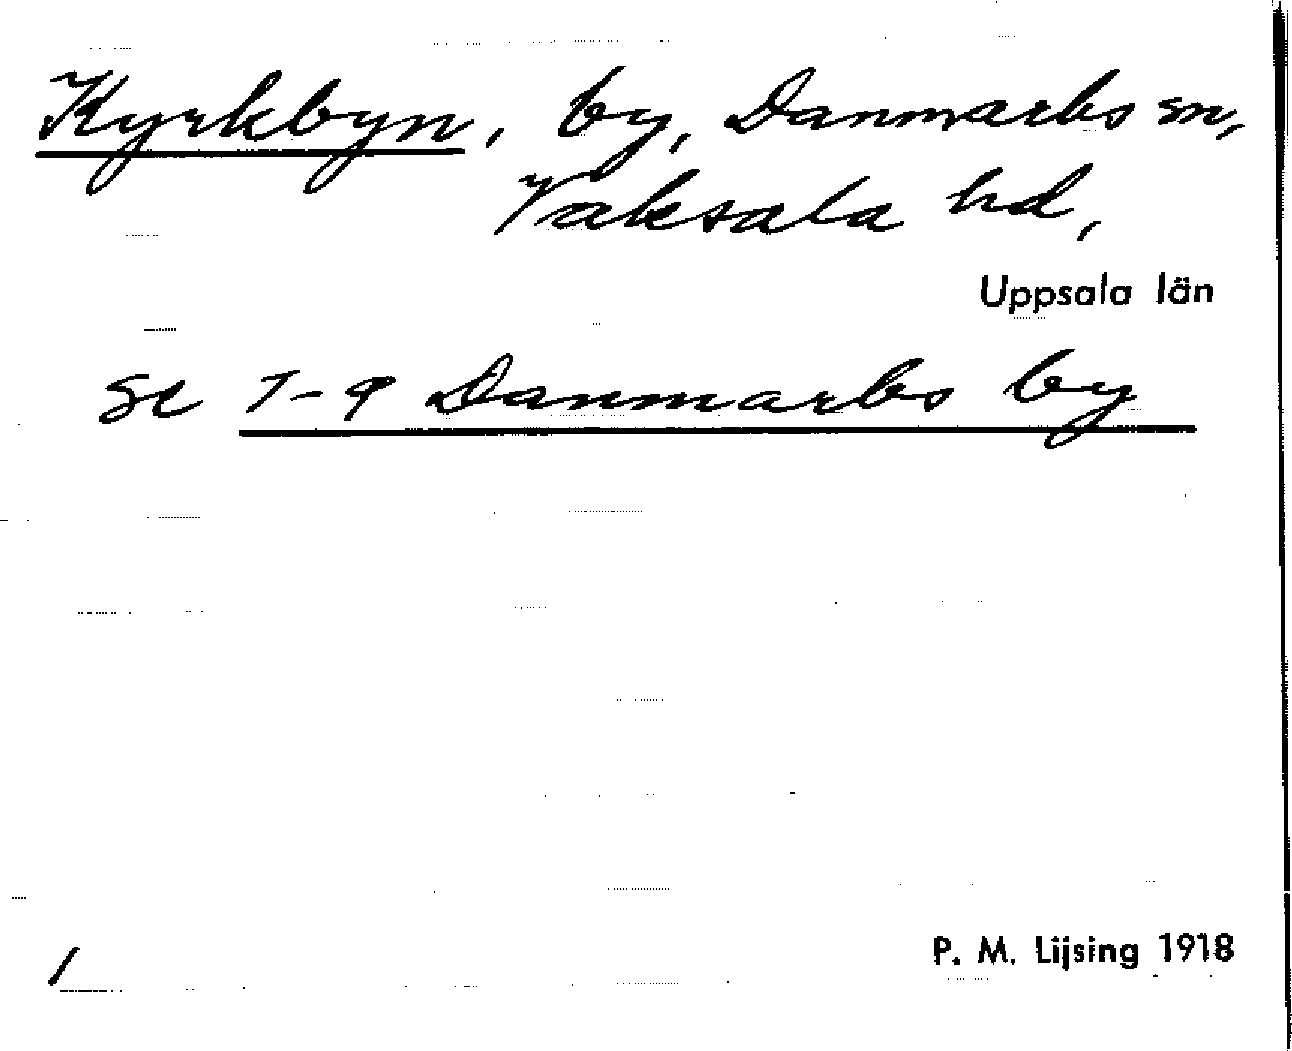 Kyrkbyn, by, Danmarks sn,
Vaksala hd,
Uppsala län
se 1-9 Danmarks by
1
P. M. Lijsing 1918